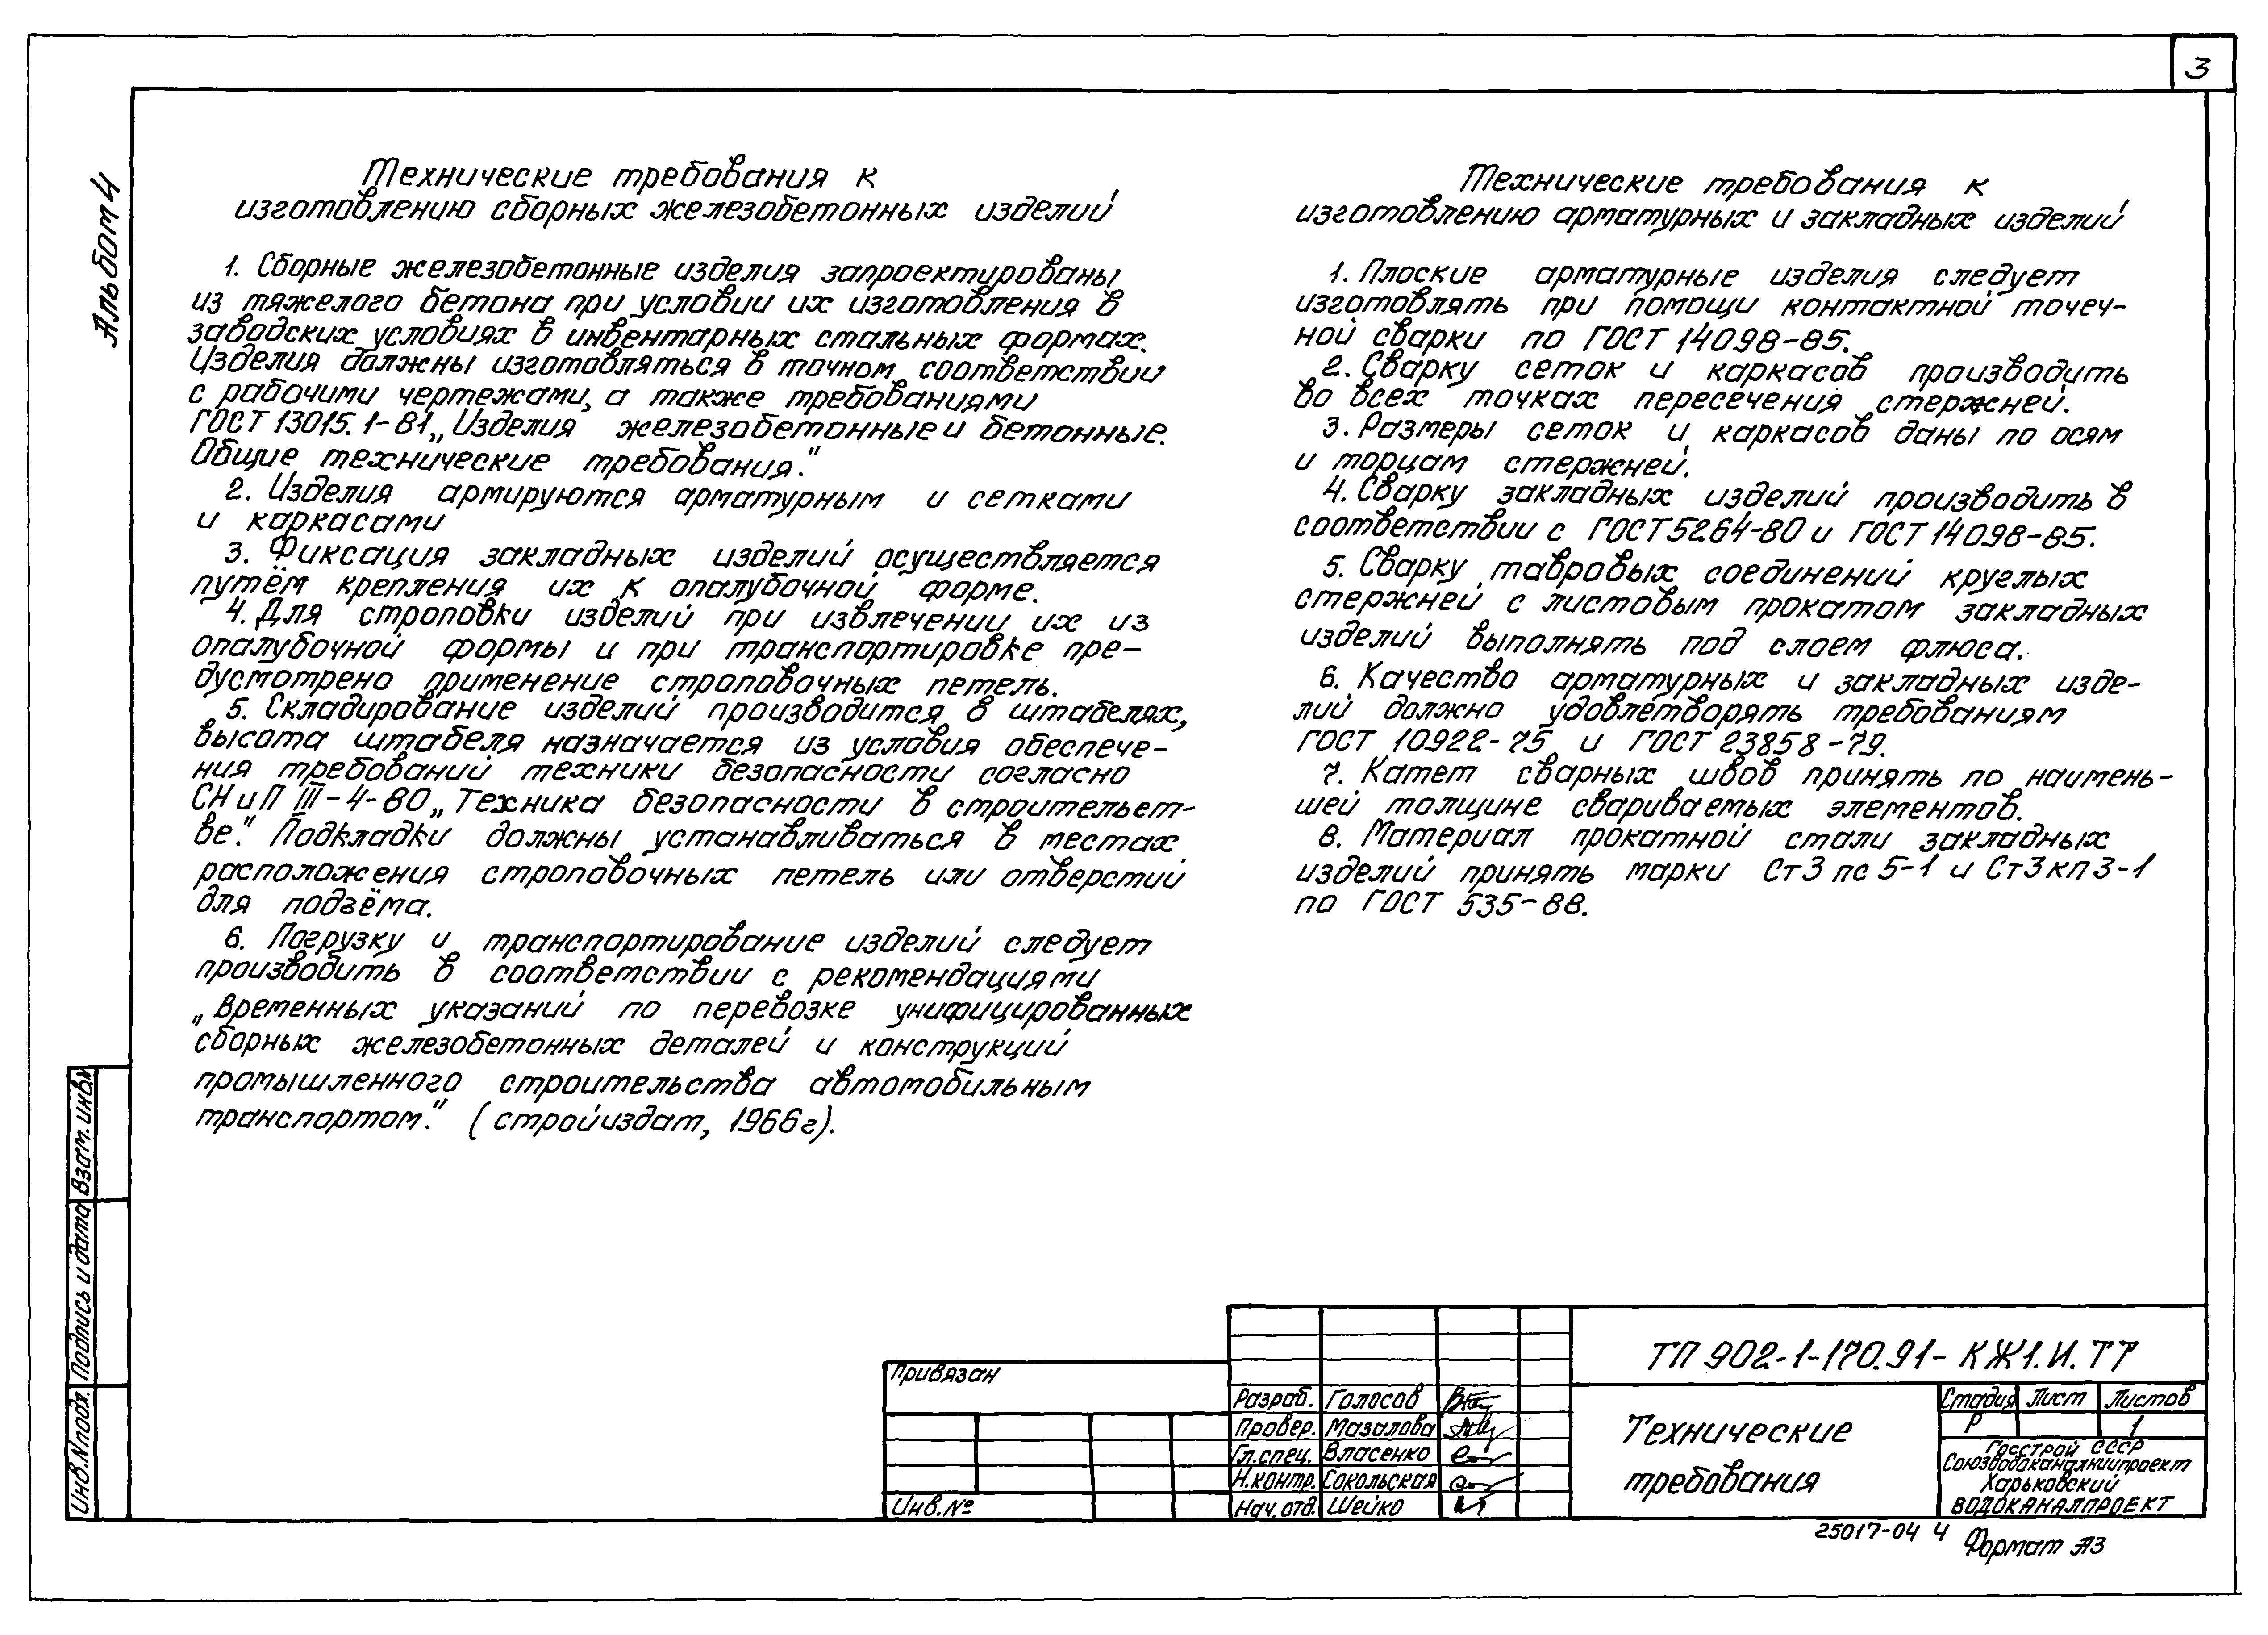 3
Альбом 4
Технические требования к
изготовлению сборных железобетонных изделий
1. Сборные железобетонные изделия запроектированы
из тяжелого бетона при условии их изготовления в
заводских условиях в инвентарных стальных формах.
Изделия должны изготовляться в точном соответствии
с рабочими чертежами, а также требованиями
ГОСТ 13015.1-81 „Изделия железобетонные и бетонные.
Общие технические требования."
2. Изделия армируются арматурным и сетками
и каркасами
3. Фиксация закладных изделий осуществляется
путём крепления их к опалубочной форме.
4. Для строповки изделий при извлечении их из
опалубочной формы и при транспортировке пре-
дусмотрено применение строповочных петель.
5. Складирование изделий производится в штабелях,
высота штабеля назначается из условия обеспече-
ния требований техники безопасности согласно
СНиП III-4-80 „Техника безопасности в строительст-
ве". Подкладки должны устанавливаться в местах
расположения строповочных петель или отверстий
для подъёма.
6. Погрузку и транспортирование изделий следует
производить в соответствии с рекомендациями
„Временных указаний по перевозке унифицированных
сборных железобетонных деталей и конструкций
промышленного строительства автомобильным
транспортом." (стройиздат, 1966г).
Технические требования к
изготовлению арматурных и закладных изделий
1. Плоские арматурные изделия следует
изготовлять при помощи контактной точеч-
ной сварки по ГОСТ 14098-85.
2. Сварку сеток и каркасов производить
во всех точках пересечения стержней.
3. Размеры сеток и каркасов даны по осям
и торцам стержней.
4. Сварку закладных изделий производить в
соответствии с ГОСТ 5264-80 и ГОСТ 14098-85.
5. Сварку тавровых соединений круглых
стержней с листовым прокатом закладных
изделий выполнять под слоем флюса.
6. Качество арматурных и закладных изде-
лий должно удовлетворять требованиям
ГОСТ 10922-75 и ГОСТ 23858-79.
7. Катет сварных швов принять по наимень-
шей толщине свариваемых элементов.
8. Материал прокатной стали закладных
изделий принять марки Ст3 пс 5-1 и Ст3 кп 3-1
по ГОСТ 535-88.
Взам. инв.№
Подпись и дата
Инв.N подл.
Привязан
Инв.№
Разраб. Голосов
Провер. Мазалова
Гл.спец. Власенко
Н.контр. Сокольская
Нач.отд. Шейко
ТП 902-1-170.91-КЖ1.И.ТТ
Технические
требования
Стадия Лист Листов
Р 1
Госстрой СССР
Союзводоканалниипроект
Харьковский
ВОДОКАНАЛПРОЕКТ
25017-04 4
Формат А3